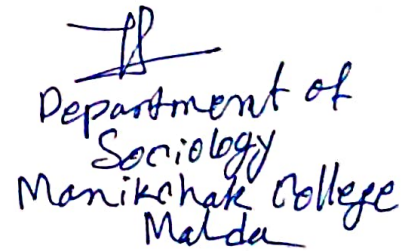 Department of
Sociology
Manikchak College
Malda